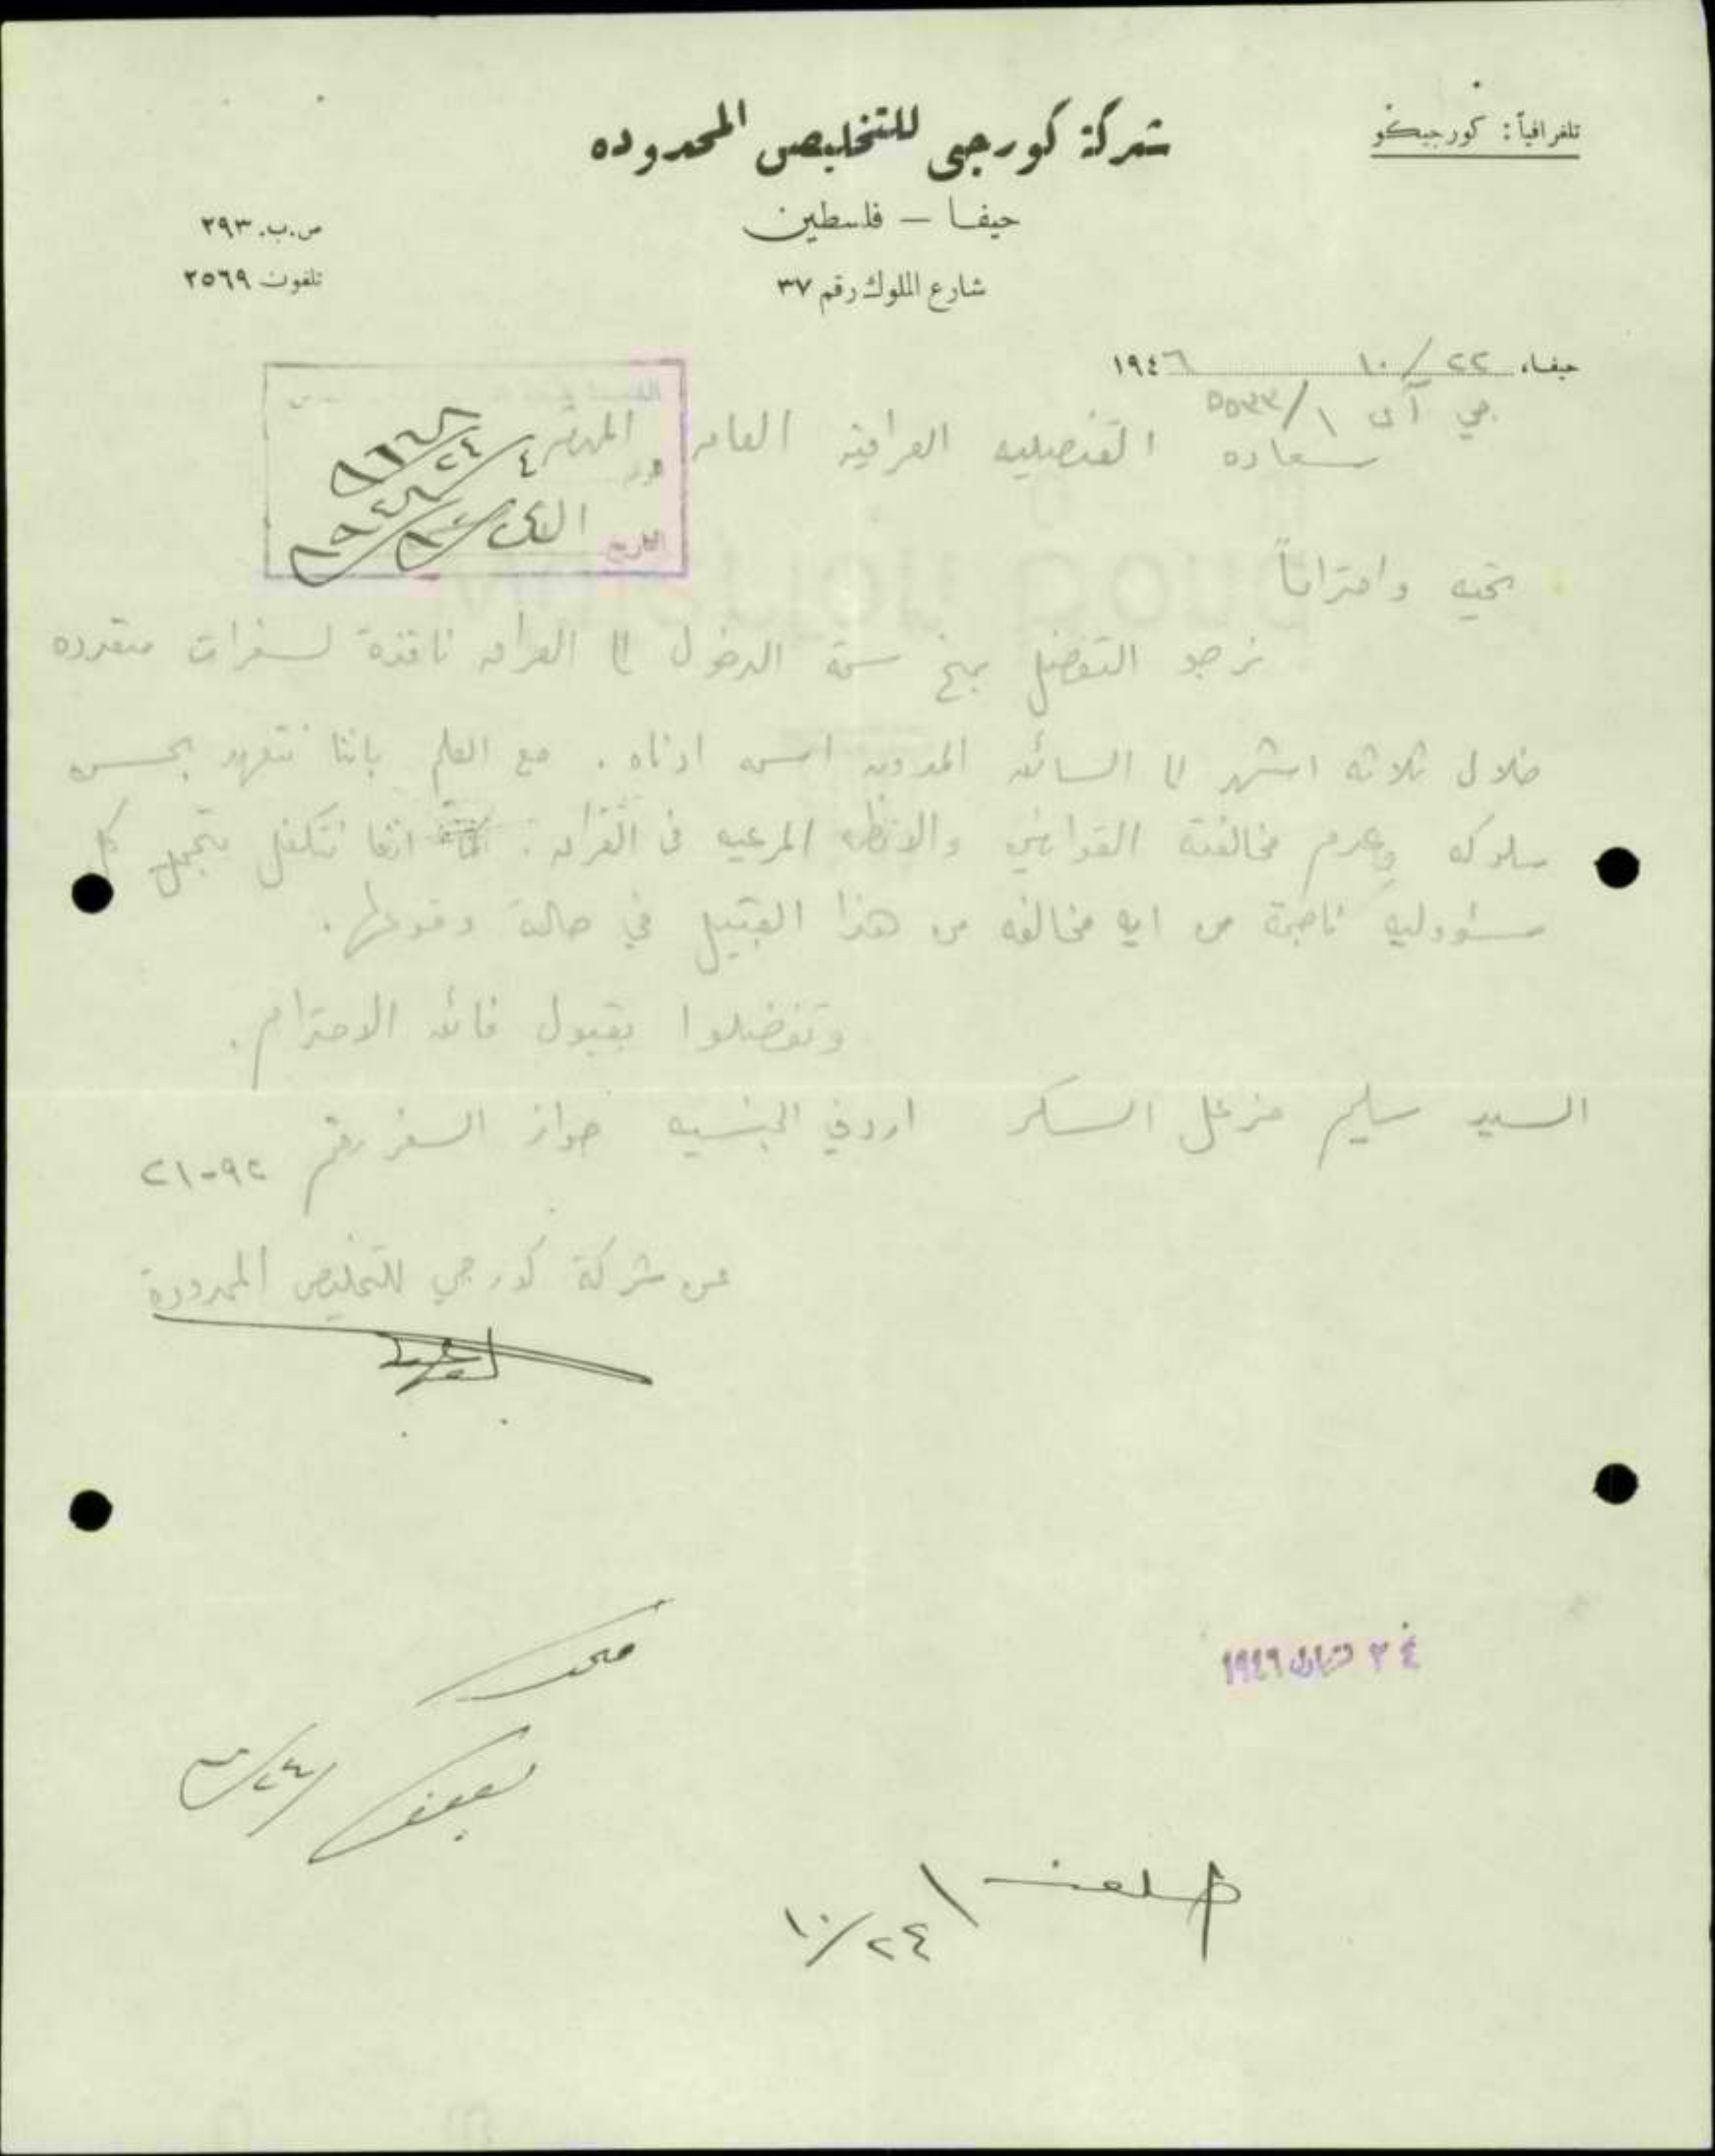 تلغرافياً: كورجيكو
شركة كورجي للتخليص المحدوده
حيفا — فلسطين
شارع الملوك رقم ٣٧
ص.ب. ٢٩٣
تلفون ٢٥٦٩
حيفا، ٢٢/١٠ ١٩٤٦
جي آى ١/٥٥٣٣
سعاده القنصليه العراقية العامه
التاريخ
تحيه واحتراماً
نرجو التفضل بمنح سمة الدخول الى العراق نافذة لسفرات متعدده
خلال ثلاثه اشهر الى السائق المدون اسمه ادناه . مع العلم باننا نتعهد بحسن
سلوكه وعدم مخالفته القوانين والانظمه المرعيه في العراق . اننا نتكفل بتحمل كل
مسؤوليه ناجمة من ايه مخالفه من هذا القبيل في حالة وقوعها .
وتفضلوا بقبول فائق الاحترام .
السيد سليم مزعل السكر اردني الجنسيه جواز السفر رقم
عن شركة كورجي للتخليص المحدودة
٢٤ ١٩٤٦
٢٤/١٠